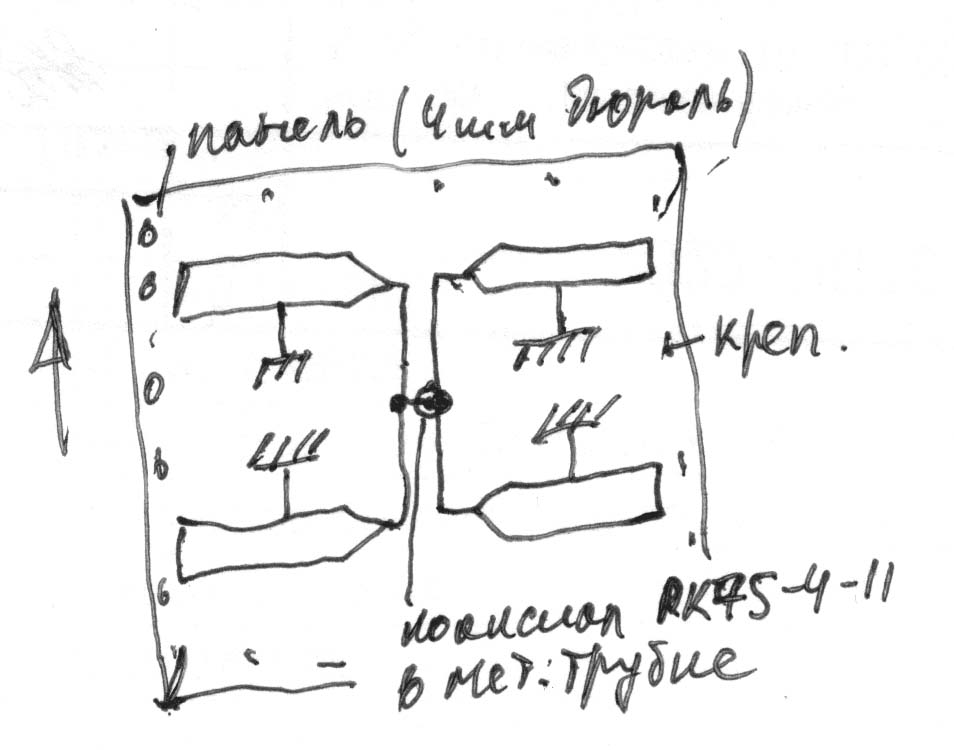 панель (4 мм дюраль)
креп.
коаксиал RK75-4-11
в мет. трубке